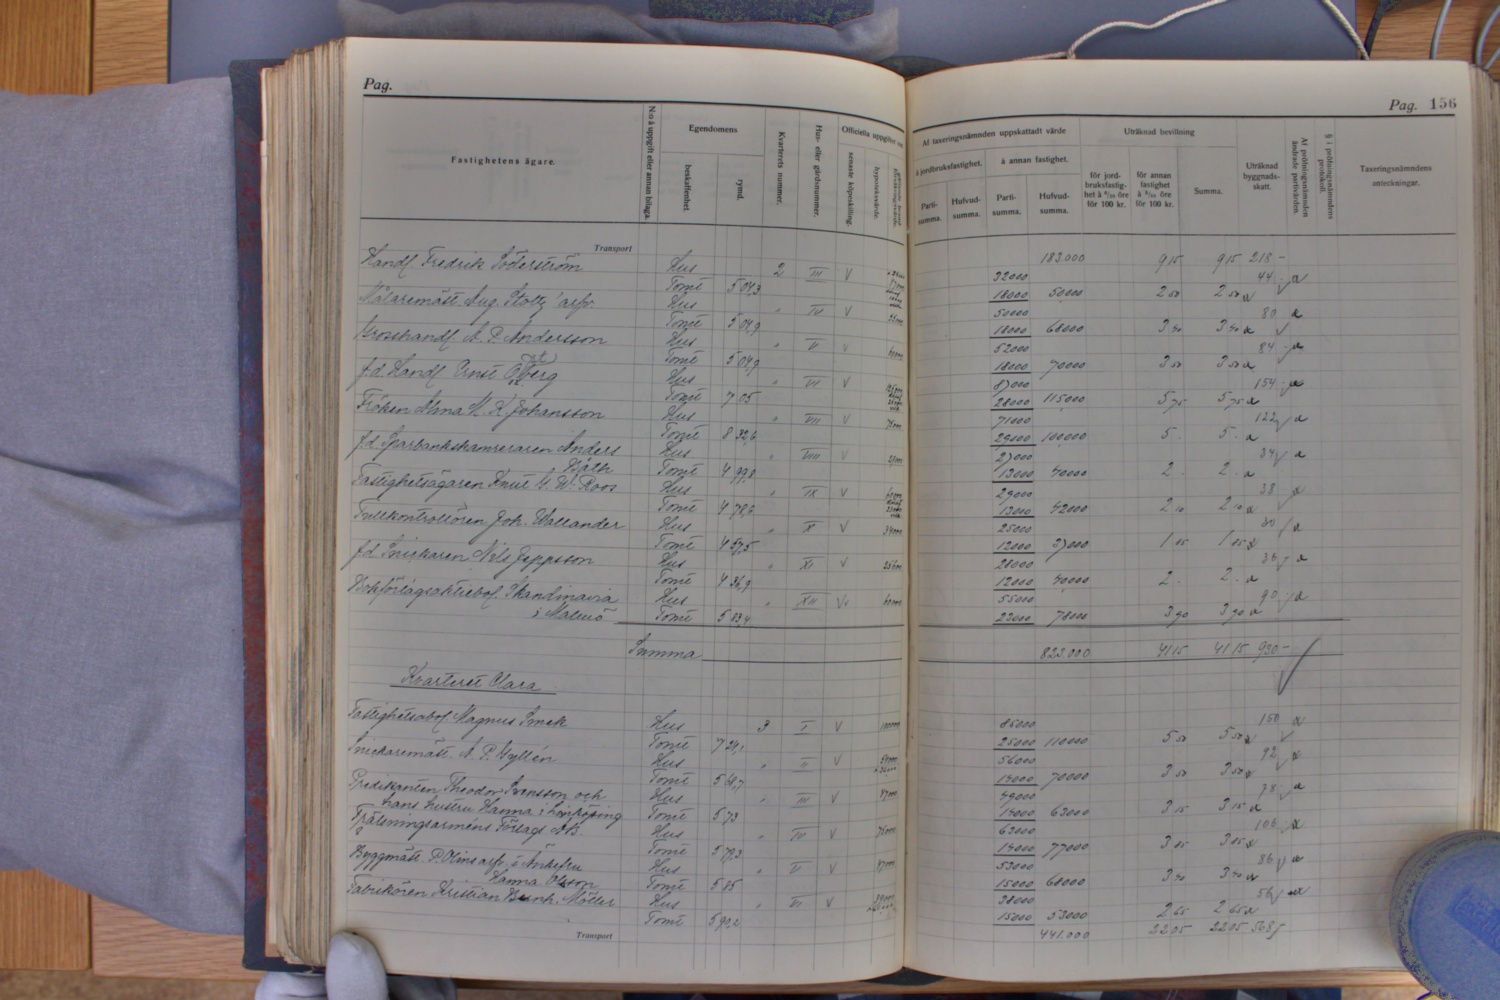 Pag.
Pag. 156
Fastighetens ägare.
N:o å uppgift eller annan bilaga.
Egendomens
beskaffenhet.
rymd.
Kvarterets nummer.
Hus- eller gårdsnummer.
Officiella uppgifter om
senaste köpeskilling.
hypoteksvärde.
Af taxeringsnämnden uppskattadt värde
å jordbruksfastighet.
å annan fastighet.
Parti-summa.
Hufvud-summa.
Parti-summa.
Hufvud-summa.
Uträknad bevillning
för jord-bruksfastig-het à 6/10 öre för 100 kr.
för annan fastighet à 5/10 öre för 100 kr.
Summa.
Uträknad byggnads-skatt.
Af pröfningsnämnden ändrade partivärden.
§ i pröfningsnämndens protokoll.
Taxeringsnämndens anteckningar.
Transport 183.000 915 915 218 -
Handl. Fredrik Söderström Hus 2 III V 32000 44
Tomt 5 04,3 18000 50000 2 50 2 50
Målaremäst. Aug. Stoltz' arfv. Hus " IV V 50000 80
Tomt 5 04,9 18000 68000 3 40 3 40
Grosshandl. A. P. Andersson Hus " V V 52000 84
Tomt 5 04,9 18000 70000 3 50 3 50
f.d. Handl. Ernst Hus " VI V 87000 154
Tomt 7 05 28000 115000 5 75 5 75
Fröken Alma M. K. Johansson Hus " VII V 71000 122
Tomt 8 32,6 29000 100000 5 - 5 -
f.d. Sparbankskamreraren Anders Hus " VIII V 27000 34
Båth Tomt 4 99,8 13000 40000 2 - 2 -
Fastighetsägaren Knut G. W. Roos Hus " IX V 29000 38
Tomt 4 78,6 13000 42000 2 10 2 10
Tullkontrollören Joh. Wallander Hus " X V 25000 30
Tomt 4 57,5 12000 37000 1 85 1 85
f.d. Snickaren Nils Jeppsson Hus " XI V 28000 36
Tomt 4 36,9 12000 40000 2 - 2 -
Bokförlagsaktiebol. Skandinavia Hus " XII V 55000 90
i Malmö Tomt 5 83,4 23000 78000 3 90 3 90
Summa 823.000 41 15 41 15 930 -
Kvarteret Clara
Fastighetsabol. Magnus Smek Hus 3 I V 100000 85000 150
Tomt 7 24,1 25000 110000 5 50 5 50
Snickaremäst. N. P. Gyllén Hus " II V 56000 92
Tomt 5 68,7 14000 70000 3 50 3 50
Predikanten Theodor Svensson och Hus " III V 47000 49000 78
hans hustru Hanna i Linköping Tomt 5 73 14000 63000 3 15 3 15
Frälsningsarméns Förlags A.B. Hus " IV V 75000 63000 106
Tomt 5 79,3 14000 77000 3 85 3 85
Byggmäst. P. Olins arfv. o. Änkefru Hus " V V 47000 53000 86
Hanna Olsson Tomt 5 85 15000 68000 3 40 3 40
Fabrikören Kristian Bernh. Möller Hus " VI V 38000 56
Tomt 5 90,2 15000 53000 2 65 2 65
Transport 441.000 22 05 22 05 568